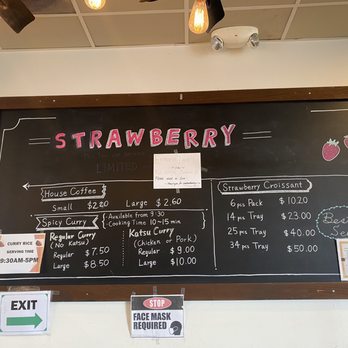 STRAWBERRY
House Coffee
Small $2.20 Large $2.60
Spicy Curry
Available from 9:30
Cooking Time 10~15 min
Regular Curry
(No Katsu)
Regular $7.50
Large $8.50
Katsu Curry
(Chicken or Pork)
Regular $9.00
Large $10.00
Strawberry Croissant
6 pcs Pack $10.20
14 pcs Tray $23.00
25 pcs Tray $40.00
34 pcs Tray $50.00
CURRY RICE
SERVING TIME
9:30AM-5PM
EXIT
STOP
FACE MASK
REQUIRED